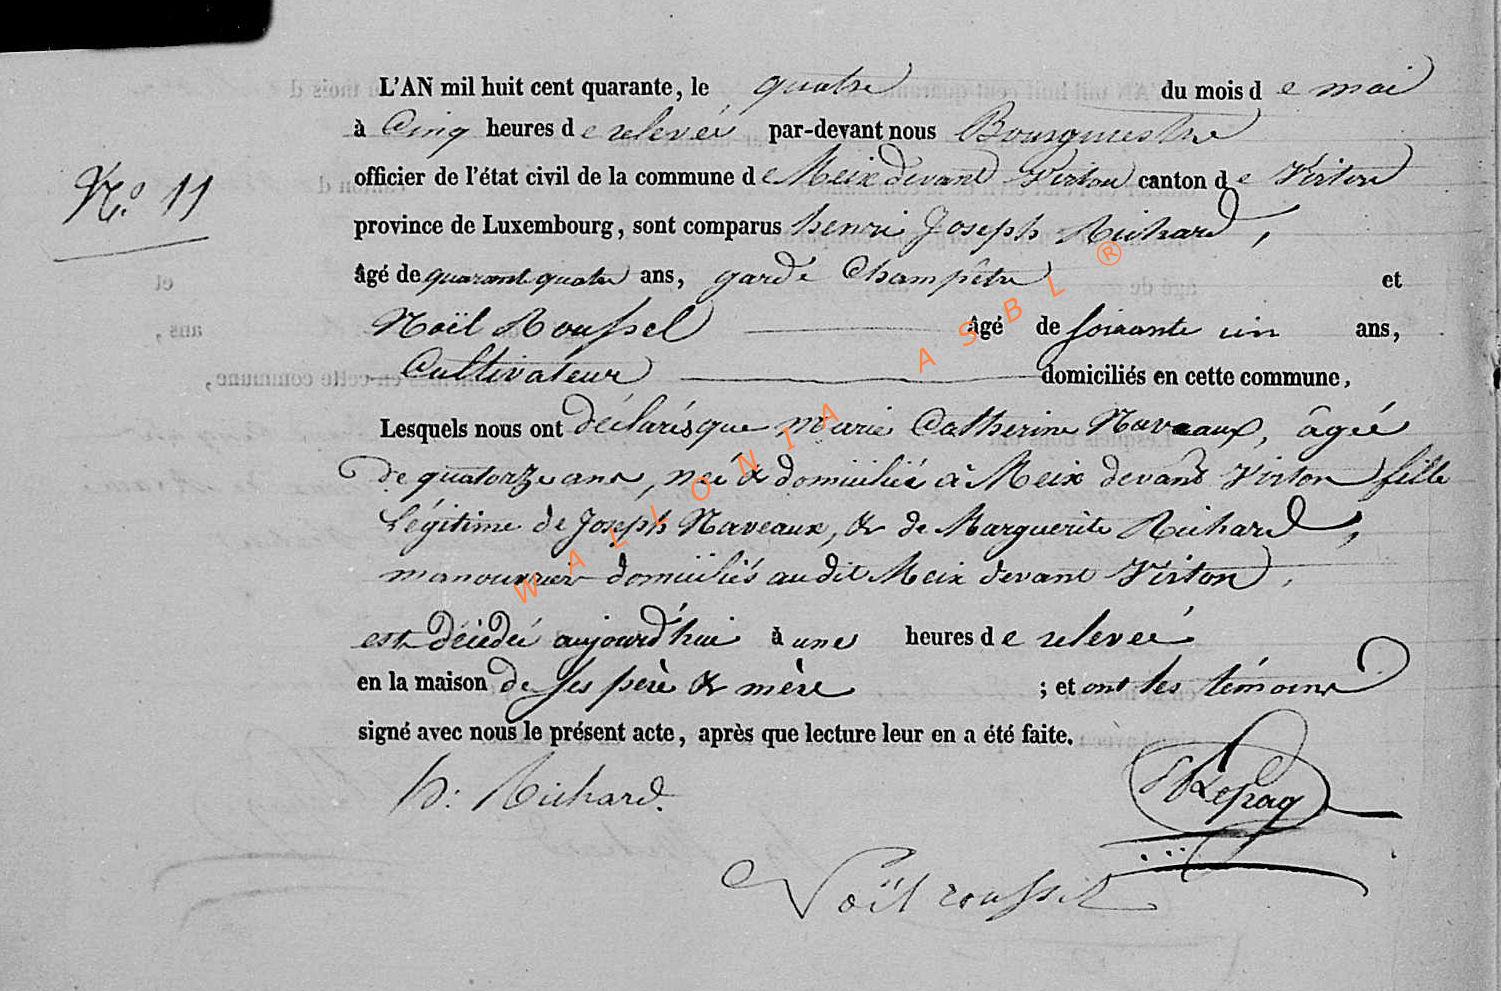 L'AN mil huit cent quarante, le quatre du mois de mai
à Cinq heures de relevée par-devant nous Bourgmestre
N.° 11
officier de l'état civil de la commune de Meix devant Virton canton de Virton
province de Luxembourg, sont comparus henri Joseph Richard,
âgé de quarante quatre ans, garde Champêtre et
Noël Roussel âgé de soixante un ans,
Cultivateur domiciliés en cette commune,
Lesquels nous ont déclarés que marie Catherine Naveaux, âgée
De quatorze ans, née & domiciliée à Meix devant Virton fille
Légitime de Joseph Naveaux, & de Marguerite Richard,
manouvrier domiciliés audit Meix devant Virton,
est décédée aujourd'hui à une heures de relevée
en la maison de ses père & mère ; et ont les témoins
signé avec nous le présent acte, après que lecture leur en a été faite.
h: Richard.
Noël roussel
WALLONIA ASBL ®